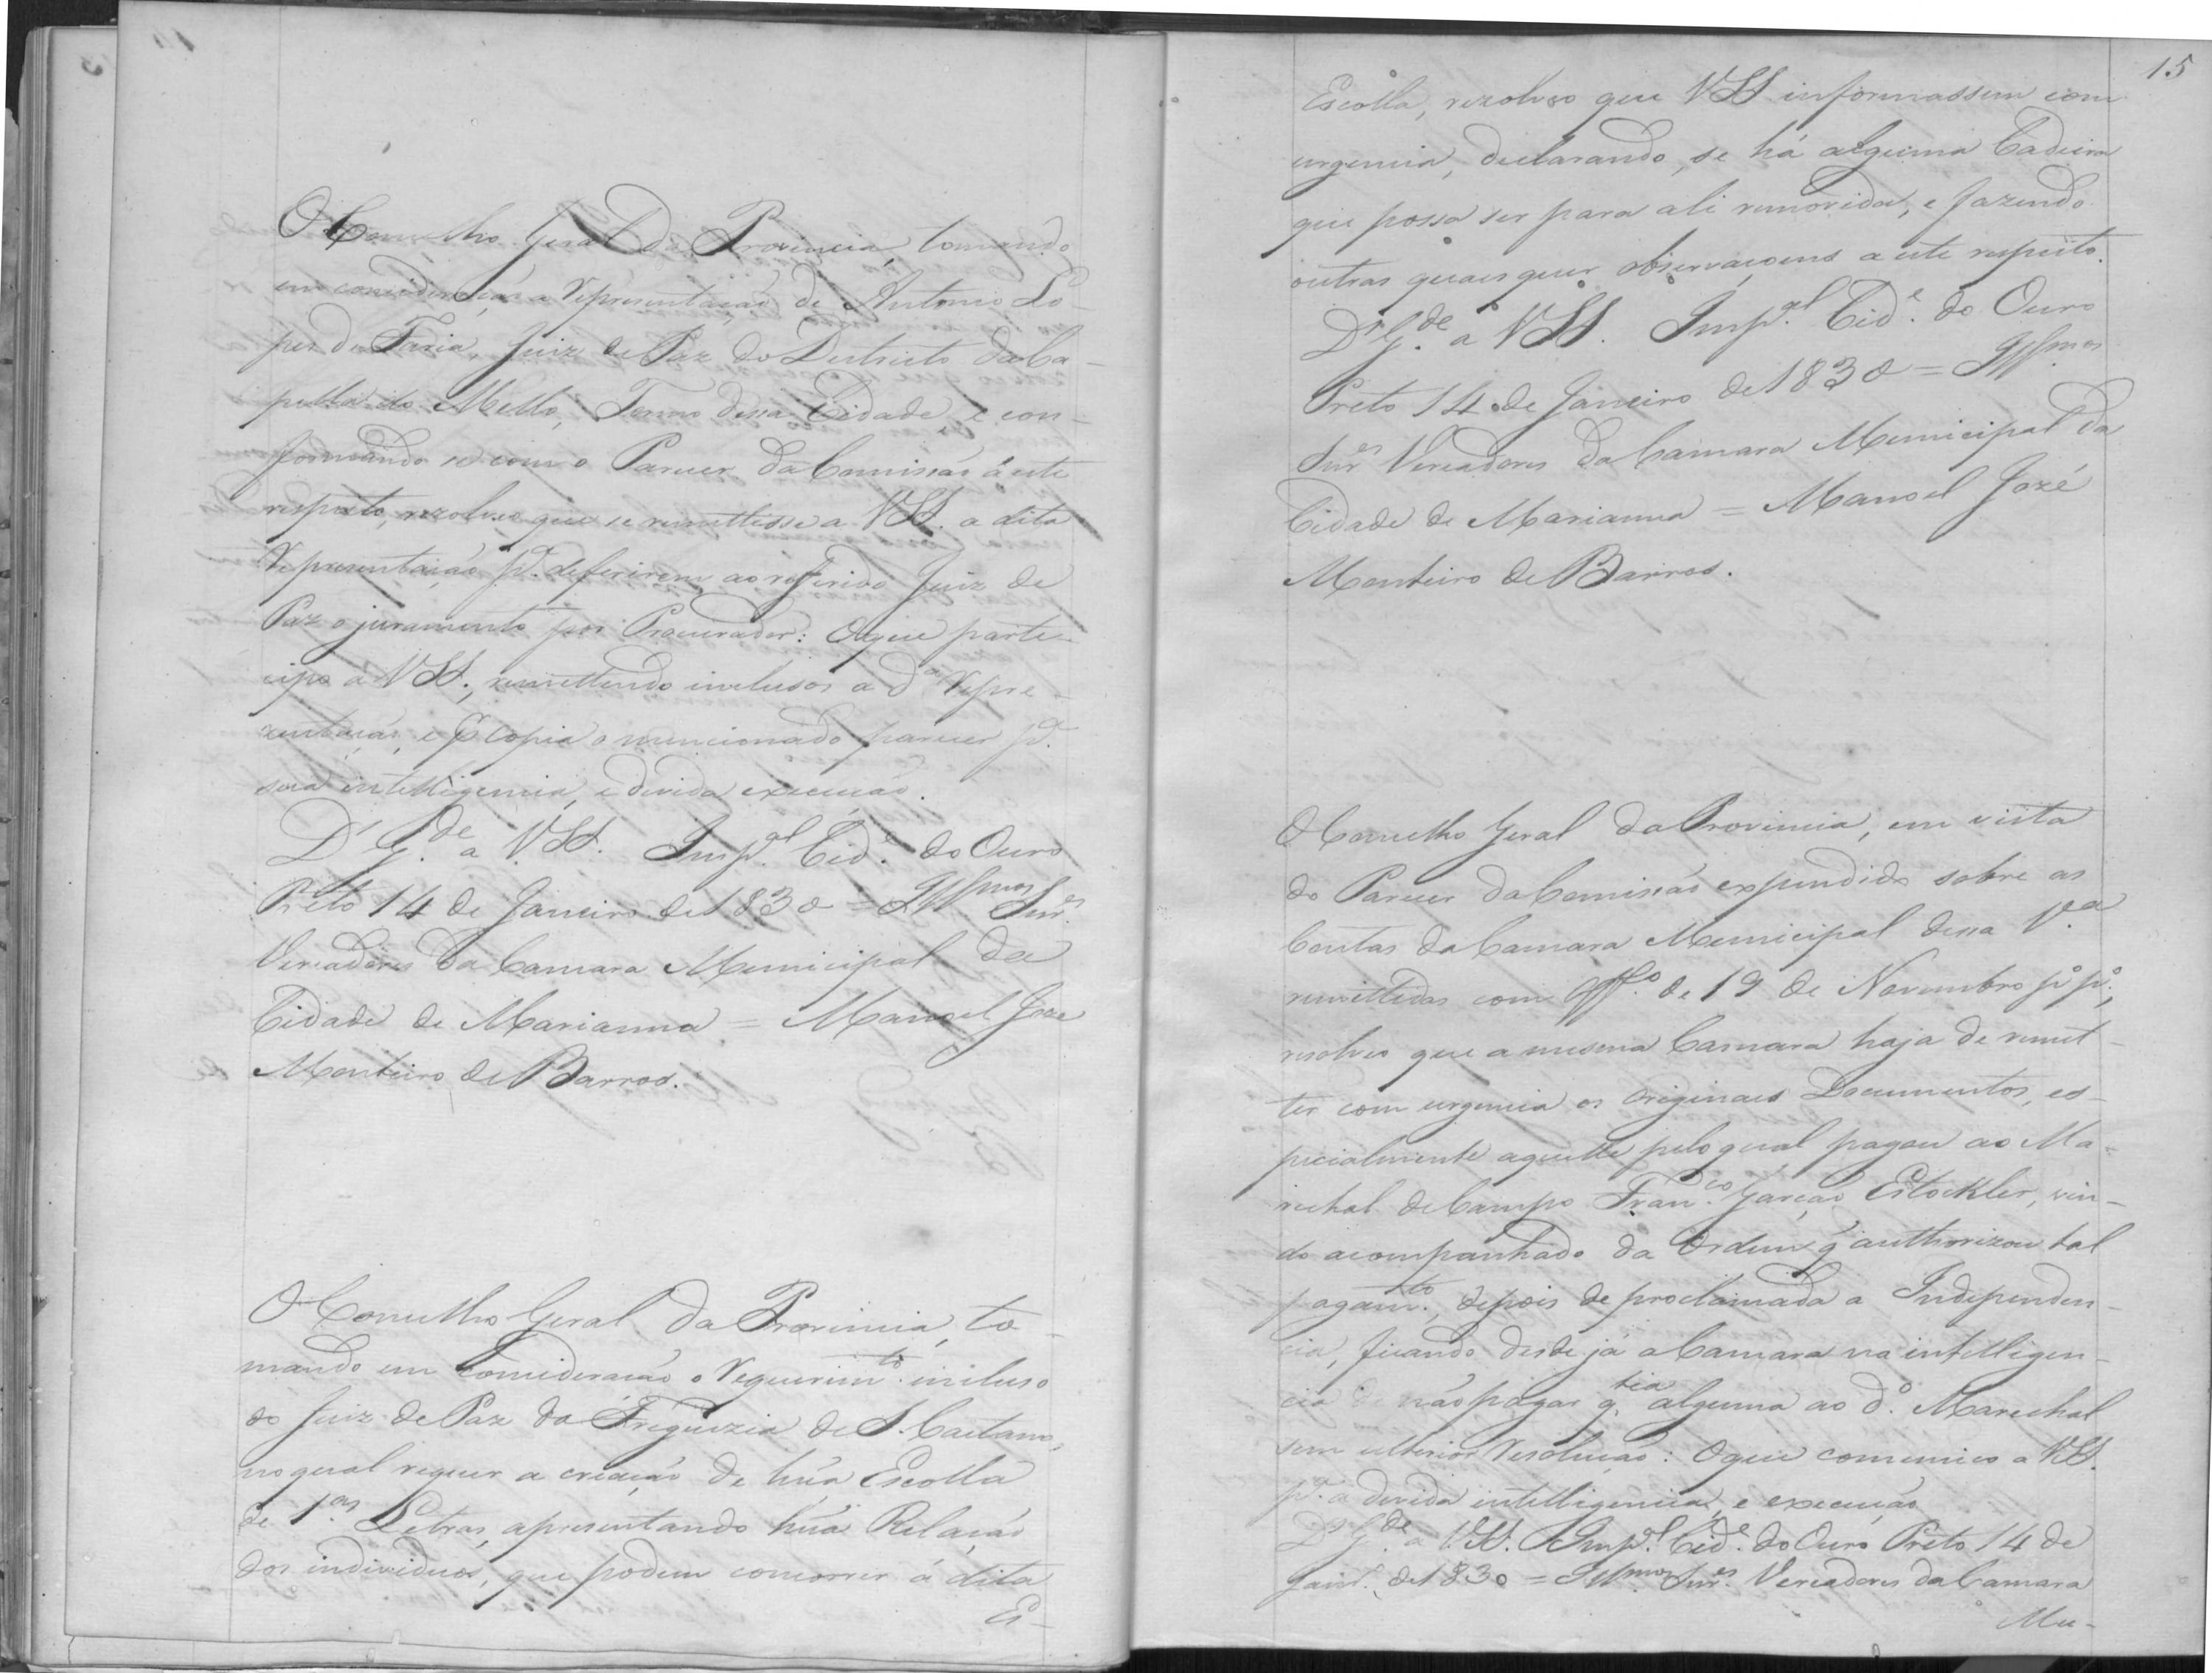 O Conselho Geral da Provincia, tomando
em consideração a Representação de Antonio Lo-
pes de Faria, Juiz de Paz do Destricto da Ca-
pella do Mello, Termo dessa Cidade, e con-
formando se com o Parecer da Comissão á este
respeito, rezolveo que se remettesse a VSS. a dita
Representação pª. deferirem ao referido Juiz de
Paz o juramento por Procurador: O que parte-
cipo a VSS., remettendo inclusos a dª Repre-
zentação, e por copia o mencionado parecer pª.
sua intelligencia, e devida execução.
Ds. Gde. a VSS. Impal. Cide. do Ouro
Preto 14 de Janeiro de 1830 = Illmos Snres.
Vereadores da Camara Municipal da
Cidade de Marianna = Manoel Joze
Monteiro de Barros.
O Conselho Geral da Provincia, to-
mando em Consideração o Requerimto. incluso
do Juiz de Paz da Freguezia de S. Caetano,
no qual requer a creação de húa Escolla
de 1.as Letras, apresentando húa Relação
dos individuos, que podem concorrer á dita
Es-
15
Escolla, rezolveo que VSS informassem com
urgencia, declarando, se há alguma Cadeira
que possa ser para ali removida, e fazendo
outras quaes quer observaçoens a este respeito.
Ds. Gde. a VSS. Impal. Cide. do Ouro
Preto 14 de Janeiro de 1830 = Illmos
Snres Vereadores da Camara Municipal da
Cidade de Marianna = Manoel Jozé
Monteiro de Barros.
O Conselho Geral da Provincia, em vista
do Parecer da Comissão expendido sobre as
Contas da Camara Municipal dessa Vª.
remettidas com Offo. de 19 de Novembro pº. pº.,
resolveo que a mesma Camara haja de remet-
ter com urgencia os Originaes Documentos, es-
pecialmente aquelle pelo qual pagou ao Ma-
rechal de Campo Franco. Garção Estockler, vin-
do acompanhado da Ordem q' authorizou tal
pagamto., depois de proclamada a Independen-
cia, ficando desde já a Camara na intelligen-
cia de não pagar qtia. alguma ao dº. Marechal
sem ulterior Resolução: O que comunico a VSS.
pª. a devida intelligencia, e execução
Ds. Gde. a VSS. Impal. Cide. do Ouro Preto 14 de
Janr. de 1830 = Illmos. Snres. Vereadores da Camara
Mu-